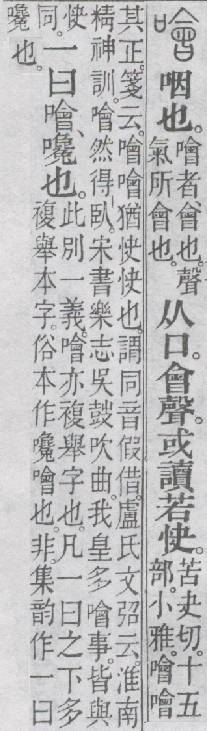 噲咽也。噲者、會也。聲
氣所會也。
从口。會聲。或讀若快。苦夬切。十五
部。小雅。噲噲
其正。箋云。噲噲猶快快也。謂同音假借。盧氏文弨云。淮南
精神訓。噲然得臥。宋書樂志吳鼔吹曲。我皇多噲事。皆與
快
同。
一曰噲、嚵也。此別一義。噲亦複舉字也。凡一曰之下多
複舉本字。俗本作嚵噲也。非。集韵作一曰
嚵
也。